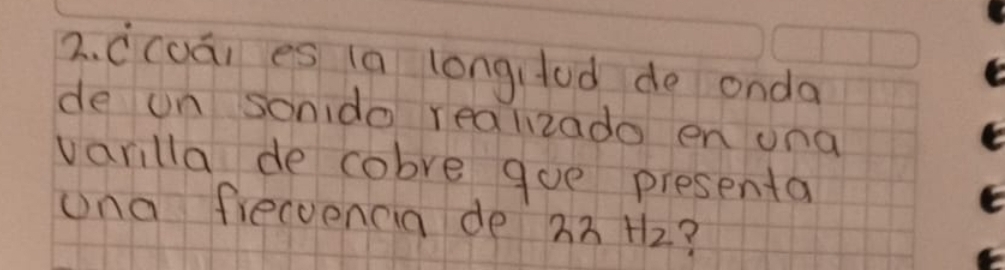 2. ¿Cuál es la longitud de onda
de un sonido realizado en una
varilla de cobre que presenta
una frecuencia de 22 Hz?